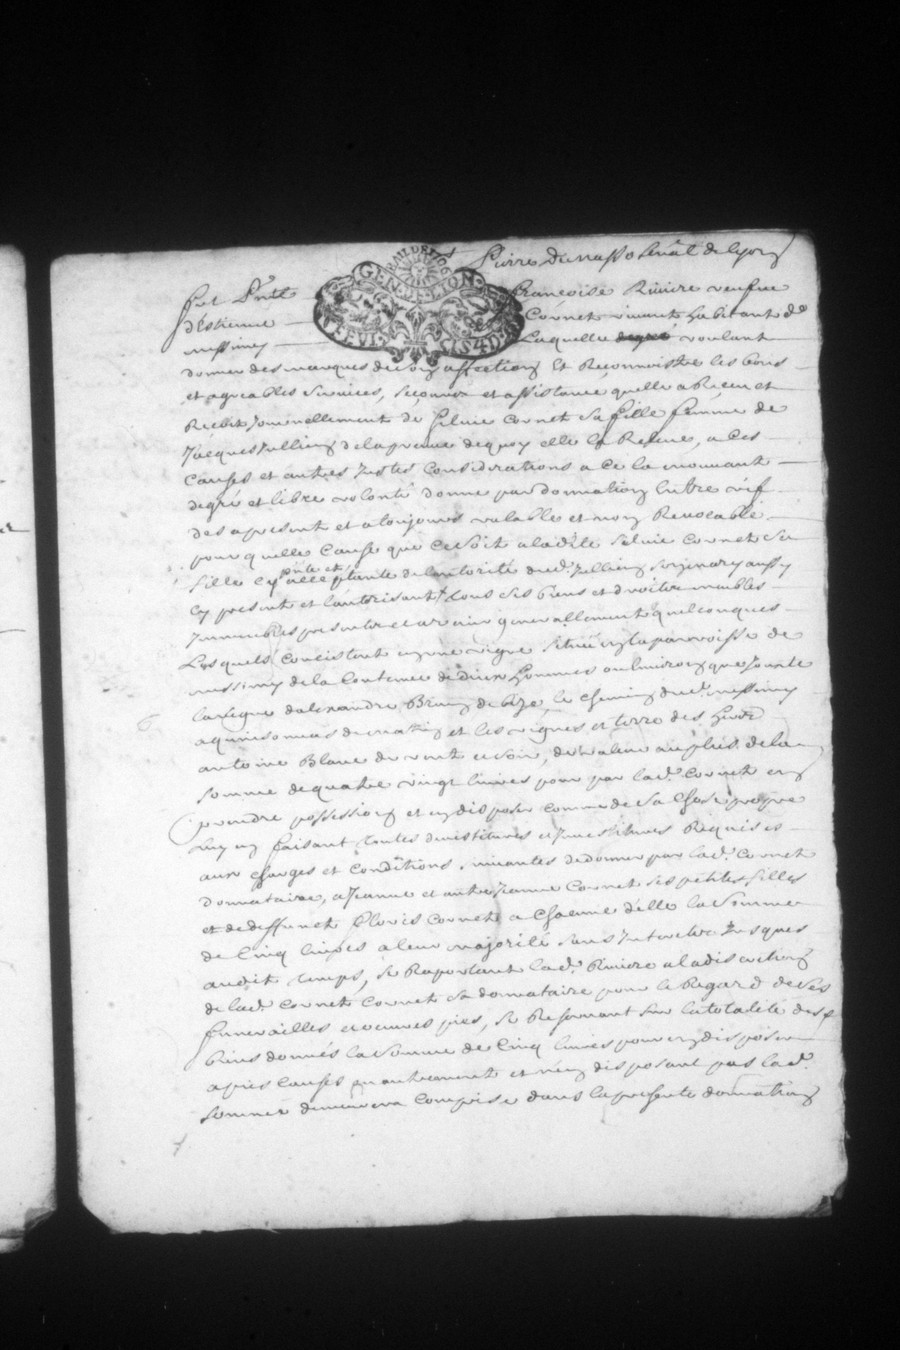 BAIL DE 1706
GEN. DE LYON
FEVI IS 4D
Pierre Dumas Senal de Lyon
fut Pnte françoise Riviere veufve
d'estienne Cornet vivant habitant de
messimy laquelle degré voulant
donner des marques de son affection et Reconnoistre les bons
et agreables Services, secours et assistance quelle a Receu et
Recoit journellement de Silvie Cornet sa fille femme de
Jacques Jullien de la preuve de quoy elle la Releve, a ces
causes et autres justes Considerations a ce la mouvant
degré et libre volonté donne par donnation entre vif
des apresent et a toujours valable et non Revocable
pour quelle Cause que ce soit a ladite Silvie Cornet sa
fille cy pnte et acceptante de lautorité dud. Jullien son mary aussy
Cy present et lautorisant tous ses biens et droits meubles
Immeubles presents et avenir generallement quelconques
Lesquels Consistent en une vigne située en la parroisse de
messimy de la Contenue de deux hommes ou Environ que jouxte
la vigne dalexandre Brun de bize, le chemin dud. messimy
a de matin et les vignes et terre des hers
antoine Blanc de vent et soir, de valeur au plus de la
somme de quatre vingt livres pour par lad. Cornet en
prendre possession et en disposer comme de sa chose propre
luy en faisant toutes devestitures et Investitures Requises
aux charges et conditions suivantes de donner par lad. Cornet
donnataire, a Jeanne et autre Jeanne Cornet ses petites filles
et de deffunct Clovis Cornet a chacune d'elle la somme
de Cinq livres a leur majorité sans Interetz jusques
audit temps, se Raportant lad. Riviere a la discretion
de lad. Cornet Cornet sa donnataire pour le Regard de ses
funerailles et oeuvres pies, se Reservant sur la totalité desd.
biens donnés la somme de Cinq livres pour en disposer
apres causes ou autrement et n'en disposant pas lad.
somme demeurera comprise dans la presente donnation